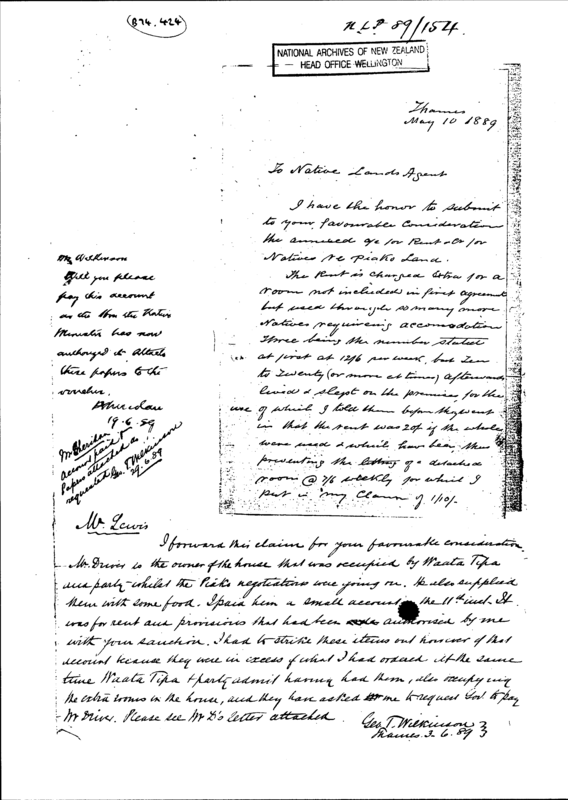 B74.424
N.L.P. 89/154
NATIONAL ARCHIVES OF NEW ZEALAND
HEAD OFFICE WELLINGTON
Thames
May 10 1889
To Native Lands Agent
I have the honor to submit
to your favourable Consideration
the annexed a/c for Rent &c for
Natives re Piako Land.
The Rent is charged Extra for a
room not included in first agreement
but used through so many more
Natives requiring accomodation
Three being the number stated
at first at 12/6 per week, but Ten
to Twenty (or more at times) afterwards
lived & slept on the premises, for the
use of which I told them before they went
in that the rent was 20/- if the whole
were used & which have been thus
preventing the letting of a detached
room @ 7/6 weekly for which I
put in my Claim of 1/10/-
Mr Wilkinson
Will you please
pay this account
as the Hon the Native
Minister has now
authorized it Attach
these papers to the
voucher.
Sheridan
19.6.89
Mr Sheridan
account paid &
Papers attached as
requested Geo T Wilkinson
29.6.89
Mr Lewis
I forward this claim for your favourable consideration.
Mr. Driver is the owner of the house that was occupied by Waata Tipa
and party whilst the Piako negotiations were going on. He also supplied
them with some food. I paid him a small account the 11th inst. It
was for rent and provisions that had been authorised by me
with your sanction. I had to strike these items out however of that
account because they were in excess of what I had ordered. At the same
time Waata Tipa & party admit having had them, also occupying
the extra rooms in the house, and they have asked me to request Govt to pay
Mr Driver. Please see Mr D's letter attached.
Geo. T. Wilkinson
Thames 3.6.89